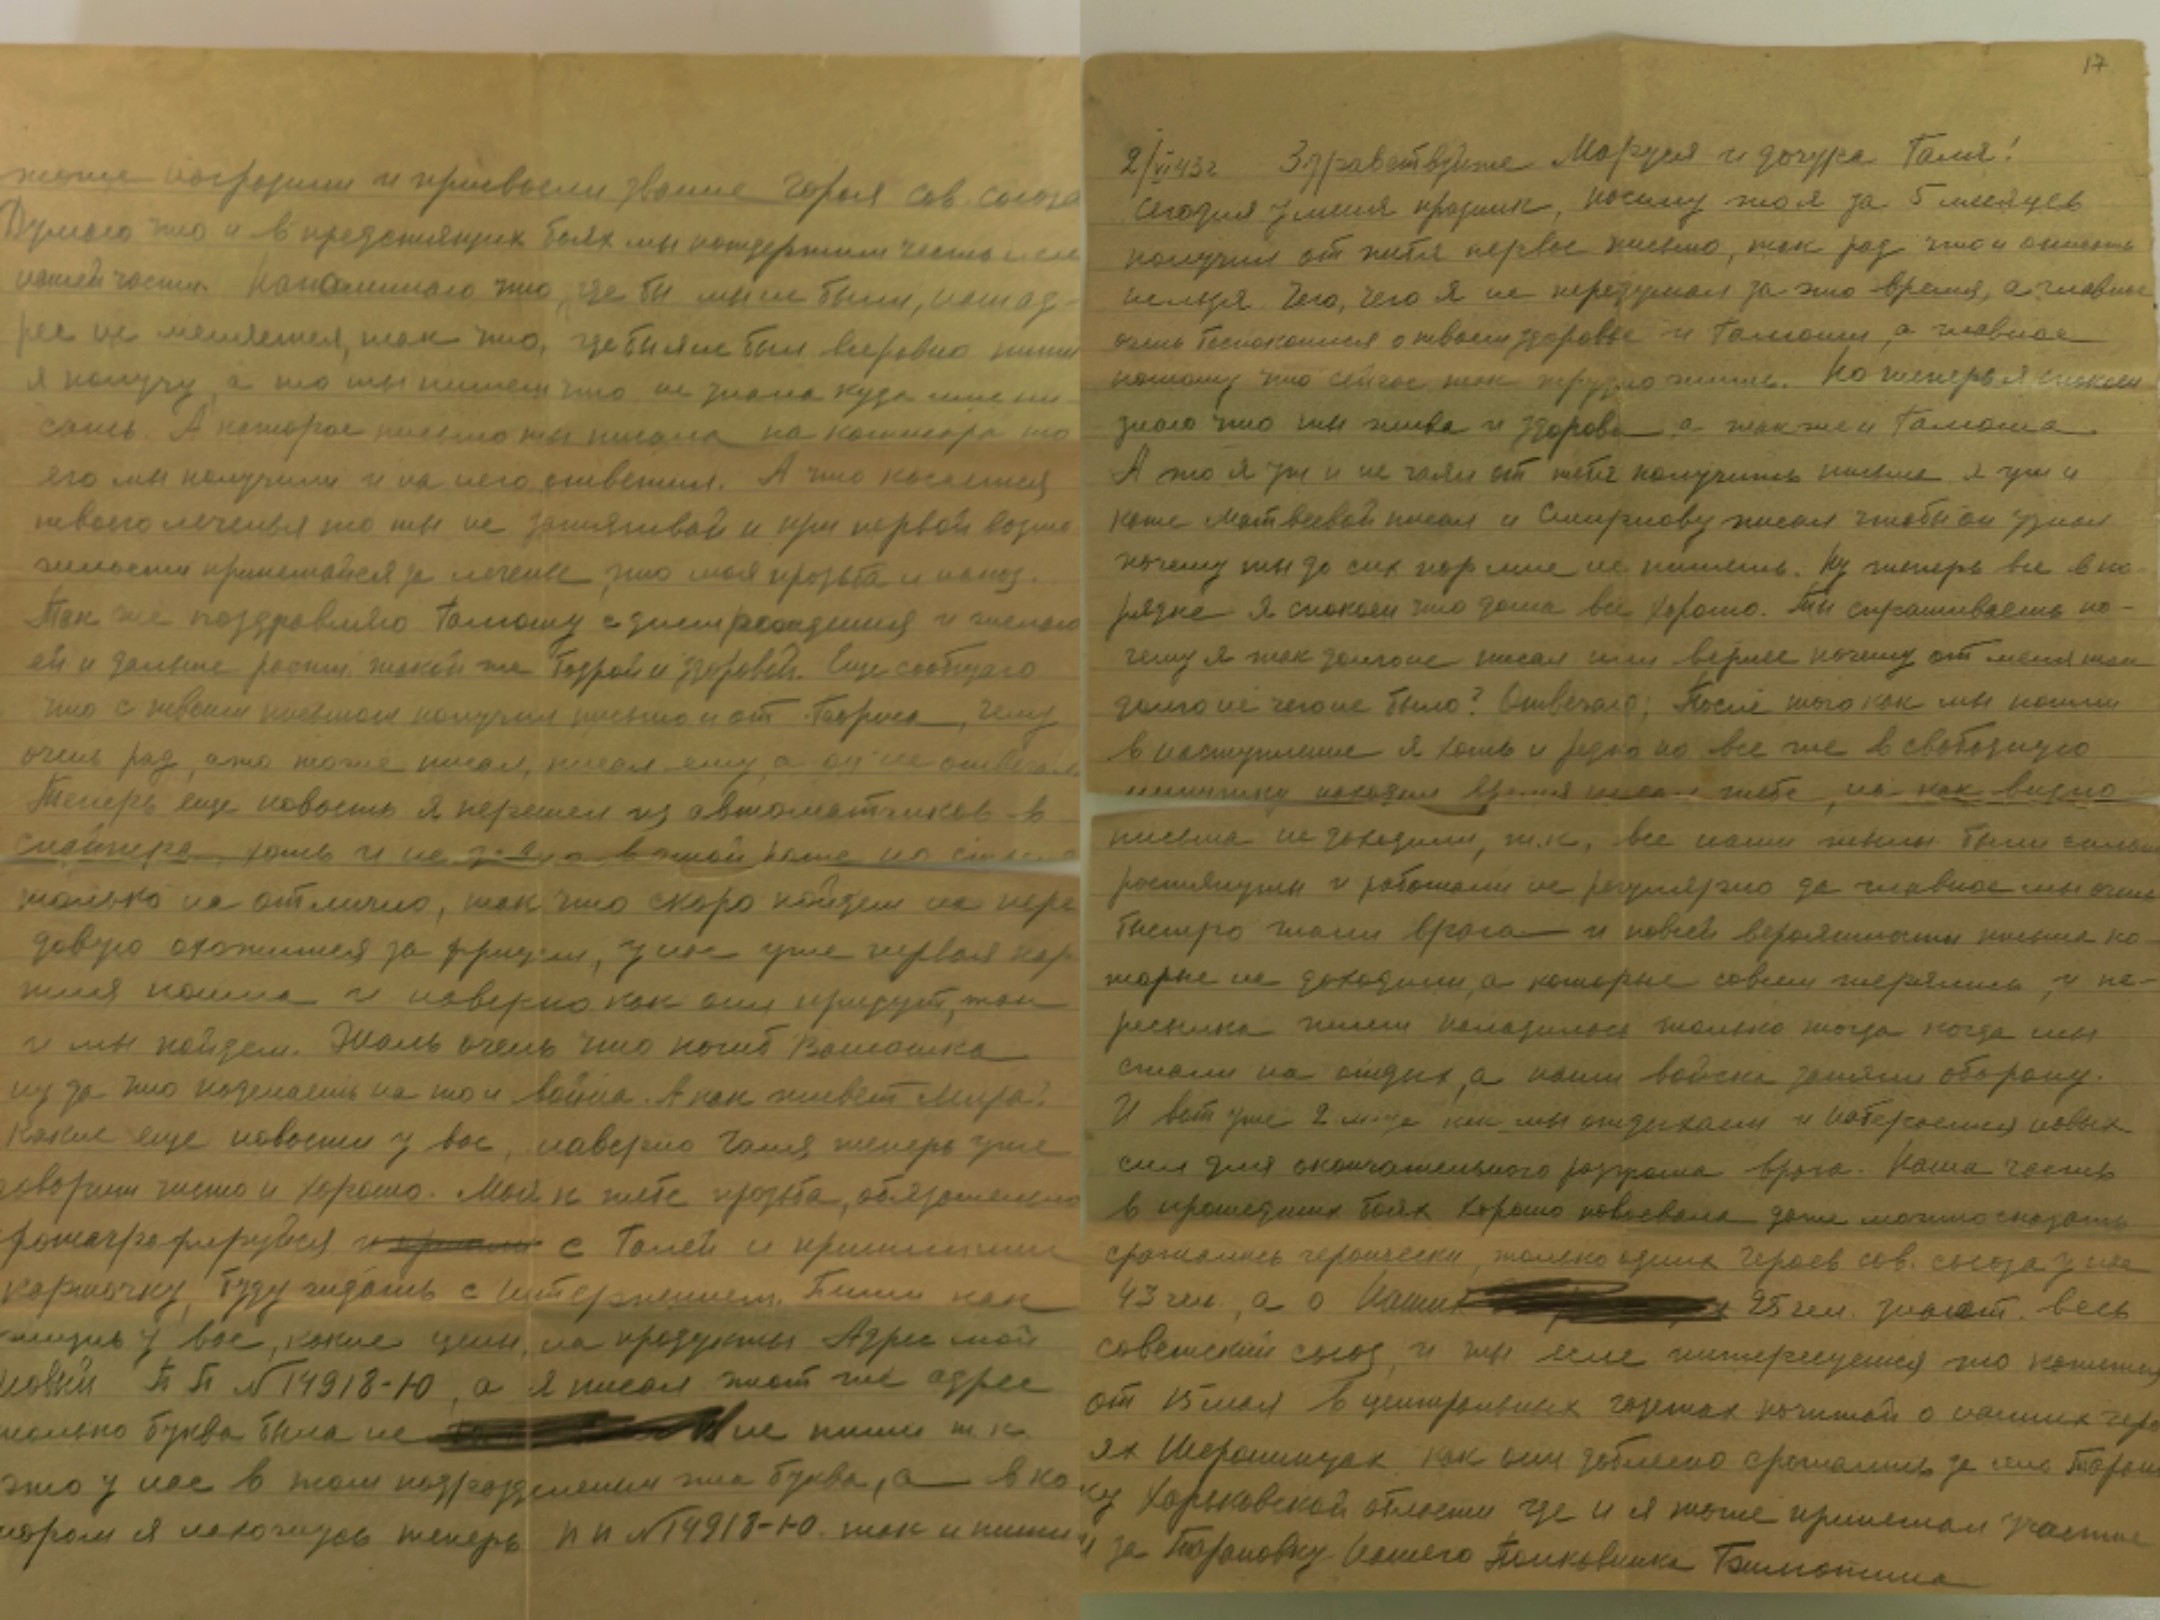 17
2/VI 43г Здравствуйте Маруся и дочура Галя!
Сегодня у меня празник, посему что я за 5 месяцев
получил от тебя первое письмо, так рад что и описать
нельзя. Чего, чего я не передумал за это время, а главное
очень беспокоился о твоем здоровье и Галюши, а главное
потому что сейчас так трудно жить. Но теперь я спокоен
знаю что ты жива и здорова, а также и Галюша.
А то я уж и не чаял от тебя получить письма я уж и
кате Матвеевой писал и Смирнову писал чтобы он узнал
почему ты до сих пор мне не пишешь. Ну теперь все в по-
рядке я спокоен что дома все хорошо. Ты спрашиваешь по-
чему я так долго не писал или вернее почему от меня так
долго не чего не было? Отвечаю: После того как мы пошли
в наступление я хоть и редко но все же в свободную
минутку находил время писал тебе, но как видно
письма не доходили, т.к. все наши тылы были сильно
растянуты и работали не регулярно да главное мы очень
быстро гнали врага и повсей вероятности письма ко-
торые не доходили, а которые совсем терялись, и пе-
реписка наладилась только тогда когда мы
стали на отдых, а наши войска заняли оборону.
И вот уже 2 м-ца как мы отдыхаем и набераемся новых
сил для окончательного разгрома врага. Наша часть
в прошедших боях хорошо повоевала даже можно сказать
сражались героически, только одних Героев сов. союза у нас
43 чел., а о наших 25 чел. знают весь
советский союз, и ты если интересуешся то
от 15 мая в центральных газетах почитай о наших геро
ях Широнинцах как они доблено сражались за село Таранов
ку Харьковской области где и я тоже принемал участие
и за Тарановку нашего Полковника Билютина
тоже наградили и присвоели звание героя сов. союза
Думаю что и в предстоящих боях мы поддержим честь
нашей части. Напоминаю что, где бы мы не были, наш ад-
рес не меняется, так что, где бы я не был всеровно
я получу, а то ты пишеш что не знала куда мне пи-
сать. А которое письмо ты писала на комисара то
его мы получили и на него ответил. А что касается
твоего леченья то ты не затягивай и при первой возмо
жности принемайся за лечение, это моя прозьба и наказ.
Так же поздравляю Галюшу с днем рождения и желаю
ей и дальше расти такой же бодрой и здоровой. Еще сообщаю
что с твоим письмом получил письмо и от Бориса, чему
очень рад, а то тоже писал, писал ему, а он не отвечал.
Теперь еще новость я перешел из автоматчиков в
снайпера, хоть и не в этой роте но
только на отлично, так что скоро пойдем на пере
довую охотится за фрицем, у нас уже первая пар
тия пошла и наверно как они придут, так
и мы пойдем. Жаль очень что погиб Ванюшка
ну да что поделаешь на то и война. А как живет Мура?
Какие еще новости у вас, наверно Галя теперь уже
говорит чисто и хорошо. Мой к тебе прозьба, обязательно
фотографируйся с Галей и пришли
карточку, буду ждать с нитерпением. Пиши как
жизнь у вас, какие цены, на продукты Адрес мой
новый ПП №14918-Ю, а я писал этот же адрес
только буква была не не пиши т.к
это у нас в том подразделении эта буква, а в ко
тором я нахожусь теперь ПП №14918-Ю. так и пиши